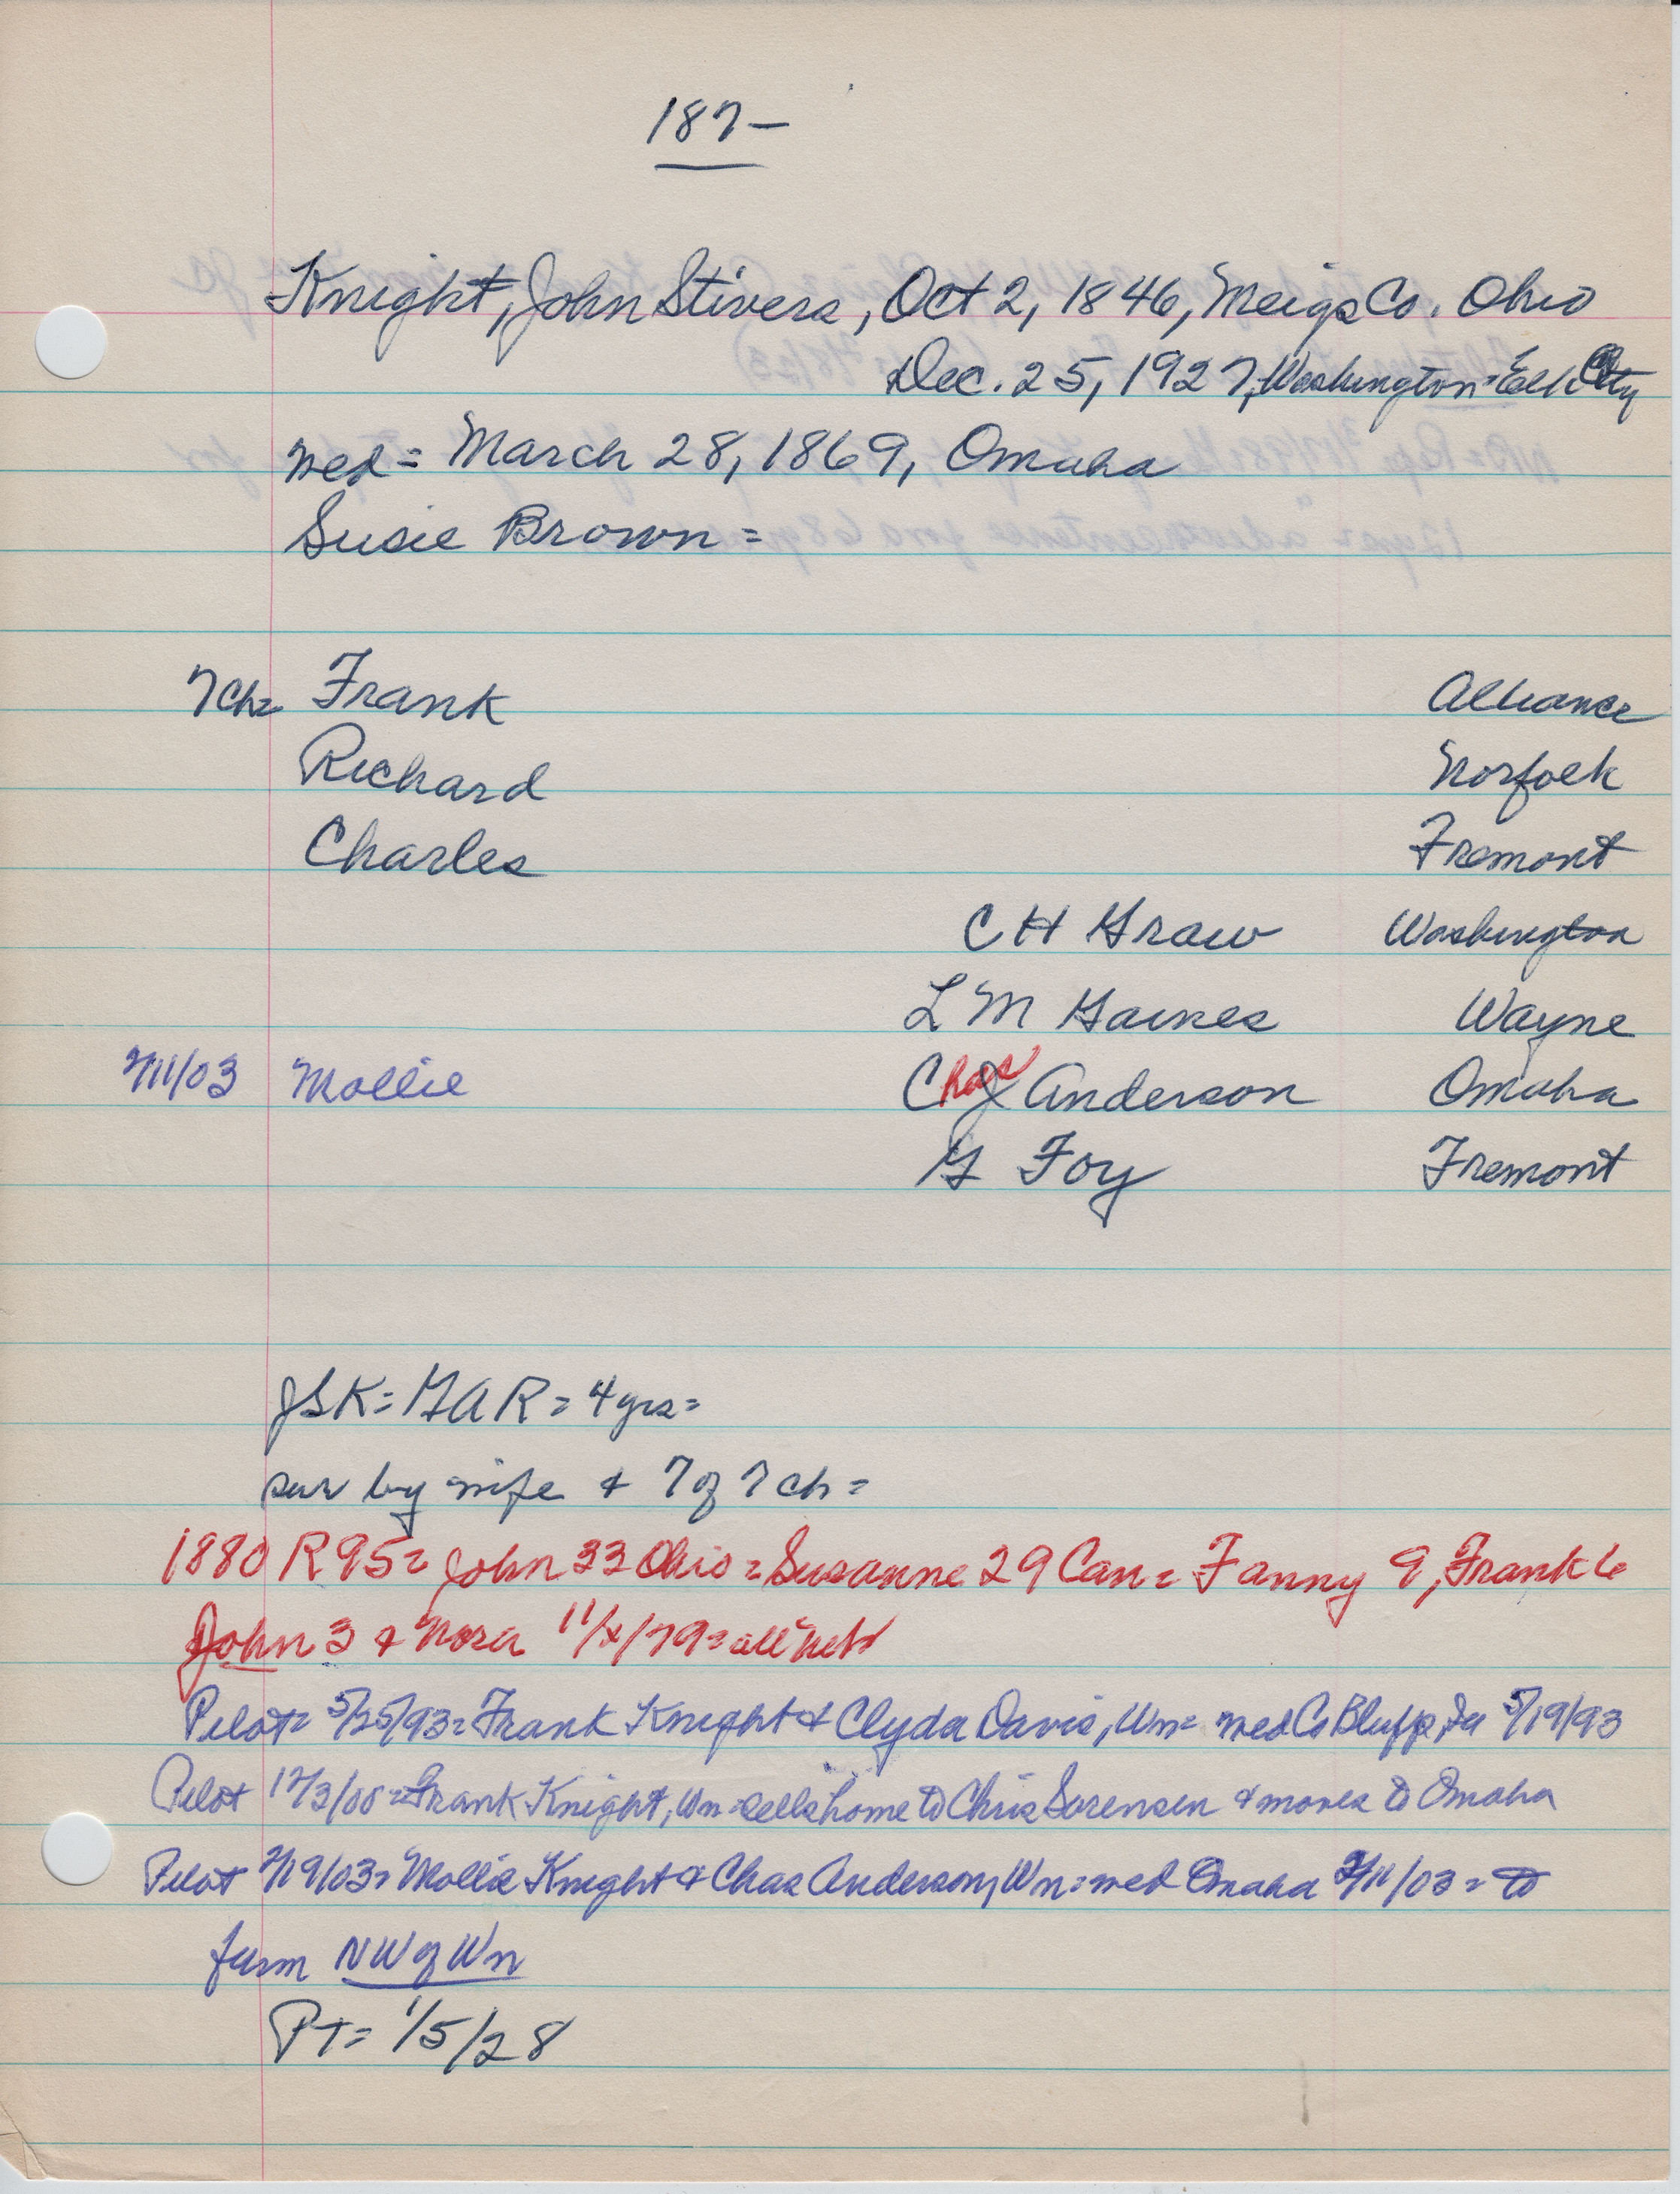 187-
Knight, John Stivers, Oct 2, 1846, Meigs Co. Ohio
Dec. 25, 1927, Washington = Elk City
med = March 28, 1869, Omaha
Susie Brown =
7 Ch = Frank Alliance
Richard Norfolk
Charles Fremont
C H Graw Washington
L M Gaines Wayne
2/11/03 Mollie Chas J Anderson Omaha
G Foy Fremont
JSK = GAR = 4 yrs =
sur by wife & 7 of 7 ch =
1880 R 95 = John 33 Ohio = Susanne 29 Can = Fanny 9, Frank 6
John 3 & Nora 11/x/79 = all Neb
Pilot = 5/25/93 = Frank Knight & Clyda Davis, Wn = med Co Bluffs, Ia 5/19/93
Pilot 12/3/08 = Frank Knight, Wn = sells home to Chris Sorensen & moves to Omaha
Pilot 2/19/03 = Mollie Knight & Chas Anderson, Wn = med Omaha 2/11/03 = to
farm NW of Wn
PT = 1/5/28